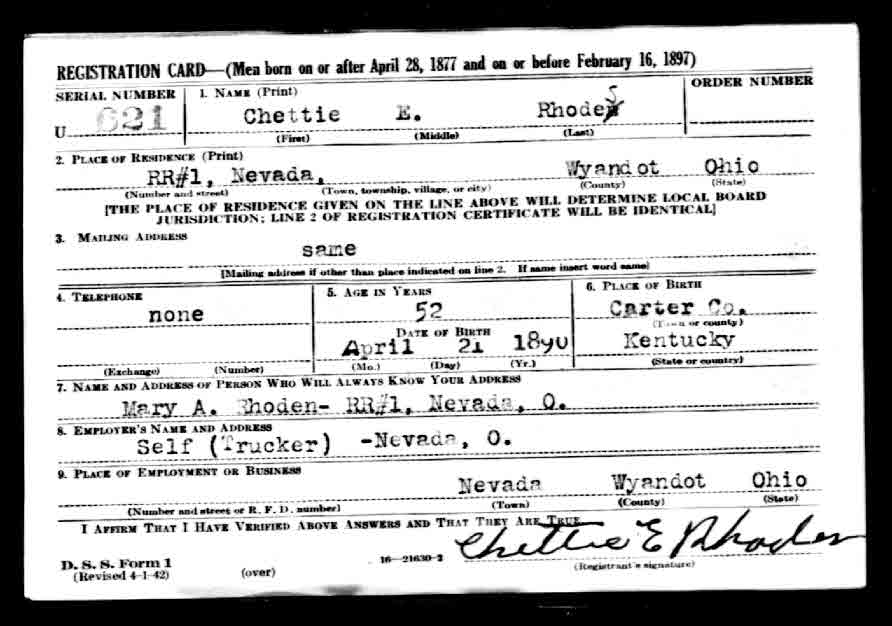 REGISTRATION CARD—(Men born on or after April 28, 1877 and on or before February 16, 1897)
SERIAL NUMBER 1. NAME (Print) ORDER NUMBER
U 621 Chettie E. Rhodes
(First) (Middle) (Last)
2. PLACE OF RESIDENCE (Print)
RR#1, Nevada, Wyandot Ohio
(Number and street) (Town, township, village, or city) (County) (State)
[THE PLACE OF RESIDENCE GIVEN ON THE LINE ABOVE WILL DETERMINE LOCAL BOARD
JURISDICTION; LINE 2 OF REGISTRATION CERTIFICATE WILL BE IDENTICAL]
3. MAILING ADDRESS
same
[Mailing address if other than place indicated on line 2. If same insert word same]
4. TELEPHONE 5. AGE IN YEARS 6. PLACE OF BIRTH
none 52 Carter Co.
(Town or county)
DATE OF BIRTH
April 21 1890 Kentucky
(Exchange) (Number) (Mo.) (Day) (Yr.) (State or country)
7. NAME AND ADDRESS OF PERSON WHO WILL ALWAYS KNOW YOUR ADDRESS
Mary A. Rhoden- RR#1, Nevada, O.
8. EMPLOYER'S NAME AND ADDRESS
Self (Trucker) -Nevada, O.
9. PLACE OF EMPLOYMENT OR BUSINESS
Nevada Wyandot Ohio
(Number and street or R. F. D. number) (Town) (County) (State)
I AFFIRM THAT I HAVE VERIFIED ABOVE ANSWERS AND THAT THEY ARE TRUE.
Chettie E Rhoden
D. S. S. Form 1
(Revised 4-1-42) (over) 16—21630-2 (Registrant's signature)